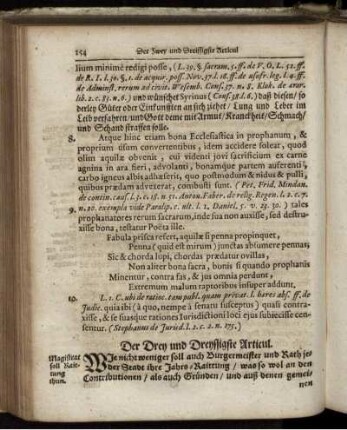 154 Der Zwey und Dreissigste Articul
lium minimè redigi posse, (L. 19. §. sacram. 5. ff. de V. O. L. 52. ff.
de R. I. l. 30. §. 1. de acquir. poss. Nov. 37. l. 18. ff. de usufr. leg. l. 4. ff.
de Administ. rerum ad civit. Wesemb. Cons. 37. n. 8. Klok. de ærar.
lib. 2. c. 81. n. 6.) und wünschet Syrinus (Cons. 38. l. 6.) daß diesen/ so
derley Güter oder Einkunfften an sich ziehet/ Lung und Leber im
Leib verfahren/ und Gott deme mit Armut/ Kranckheit/ Schmach/
und Schand straffen solle.
8. Atque hinc etiam bona Ecclesiastica in prophanum, &
proprium usum convertentibus, idem accidere soleat, quod
olim aquilæ obvenit, cui videnti jovi sacrificium ex carne
agnina in ara fieri, advolanti, bonamque partem auferenti,
carbo igneus albis adhæserit, quo postmodum & nidus & pulli,
quibus prædam advexerat, combusti sunt. (Pet. Frid. Mindan.
de contin. caus. l. 3. c. 18. n. 51. Anton. Faber. de relig. Regen. l. 2. c. 7.
9. n. 20. exempla vide Paralip. c. ult. l. 1. Daniel. 5. v. 23. 30.) tales
prophanatores rerum sacrarum, inde sua non auxisse, sed destru-
xisse bona, testatur Poëta ille.
Fabula prisca refert, aquilæ si penna propinquet,
Penna (quid est mirum) junctas absumere pennas,
Sic & chorda lupi, chordas prædatur ovillas,
Non aliter bona sacra, bonis si quando prophanis
Minentur, contra fas, & jus omnia perdunt,
Extremum malum raptoribus insuper addunt.
10. L. 1. C. ubi de ratioc. tam publ. quam privat. l. hares abs. ff. de
Judic. quia ibi (à quo, nempè à senatu susceptus) quasi contra-
xisse, & se suasque rationes Jurisdictioni loci ejus subjecisse cen-
setur. (Stephanus de Juried. l. 2. c. 2. n. 175.)
Der Drey und Dreyssigste Articul.
Magistrat soll Raitung thun.
Wie nicht weniger soll auch Burgermeister und Rath je-
der Stadt ihre Jahrs-Raittung/ was so wol an den
Contributionen/ als auch Gründen/ und auß denen gemei-
nen